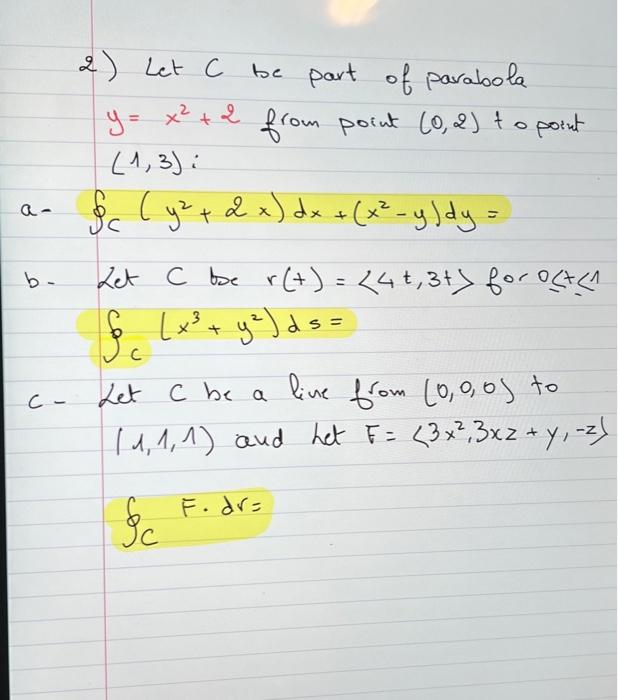 2) Let C be part of parabola
y = x² + 2 from point (0,2) to point
(1,3):
a- ∮c (y² + 2x)dx + (x² - y)dy =
b- Let C be r(t) = <4t,3t> for 0≤t≤1
∮c (x³ + y²)ds =
c- Let C be a line from (0,0,0) to
(1,1,1) and let F = <3x²,3xz + y,-z>
∮c F. dr=